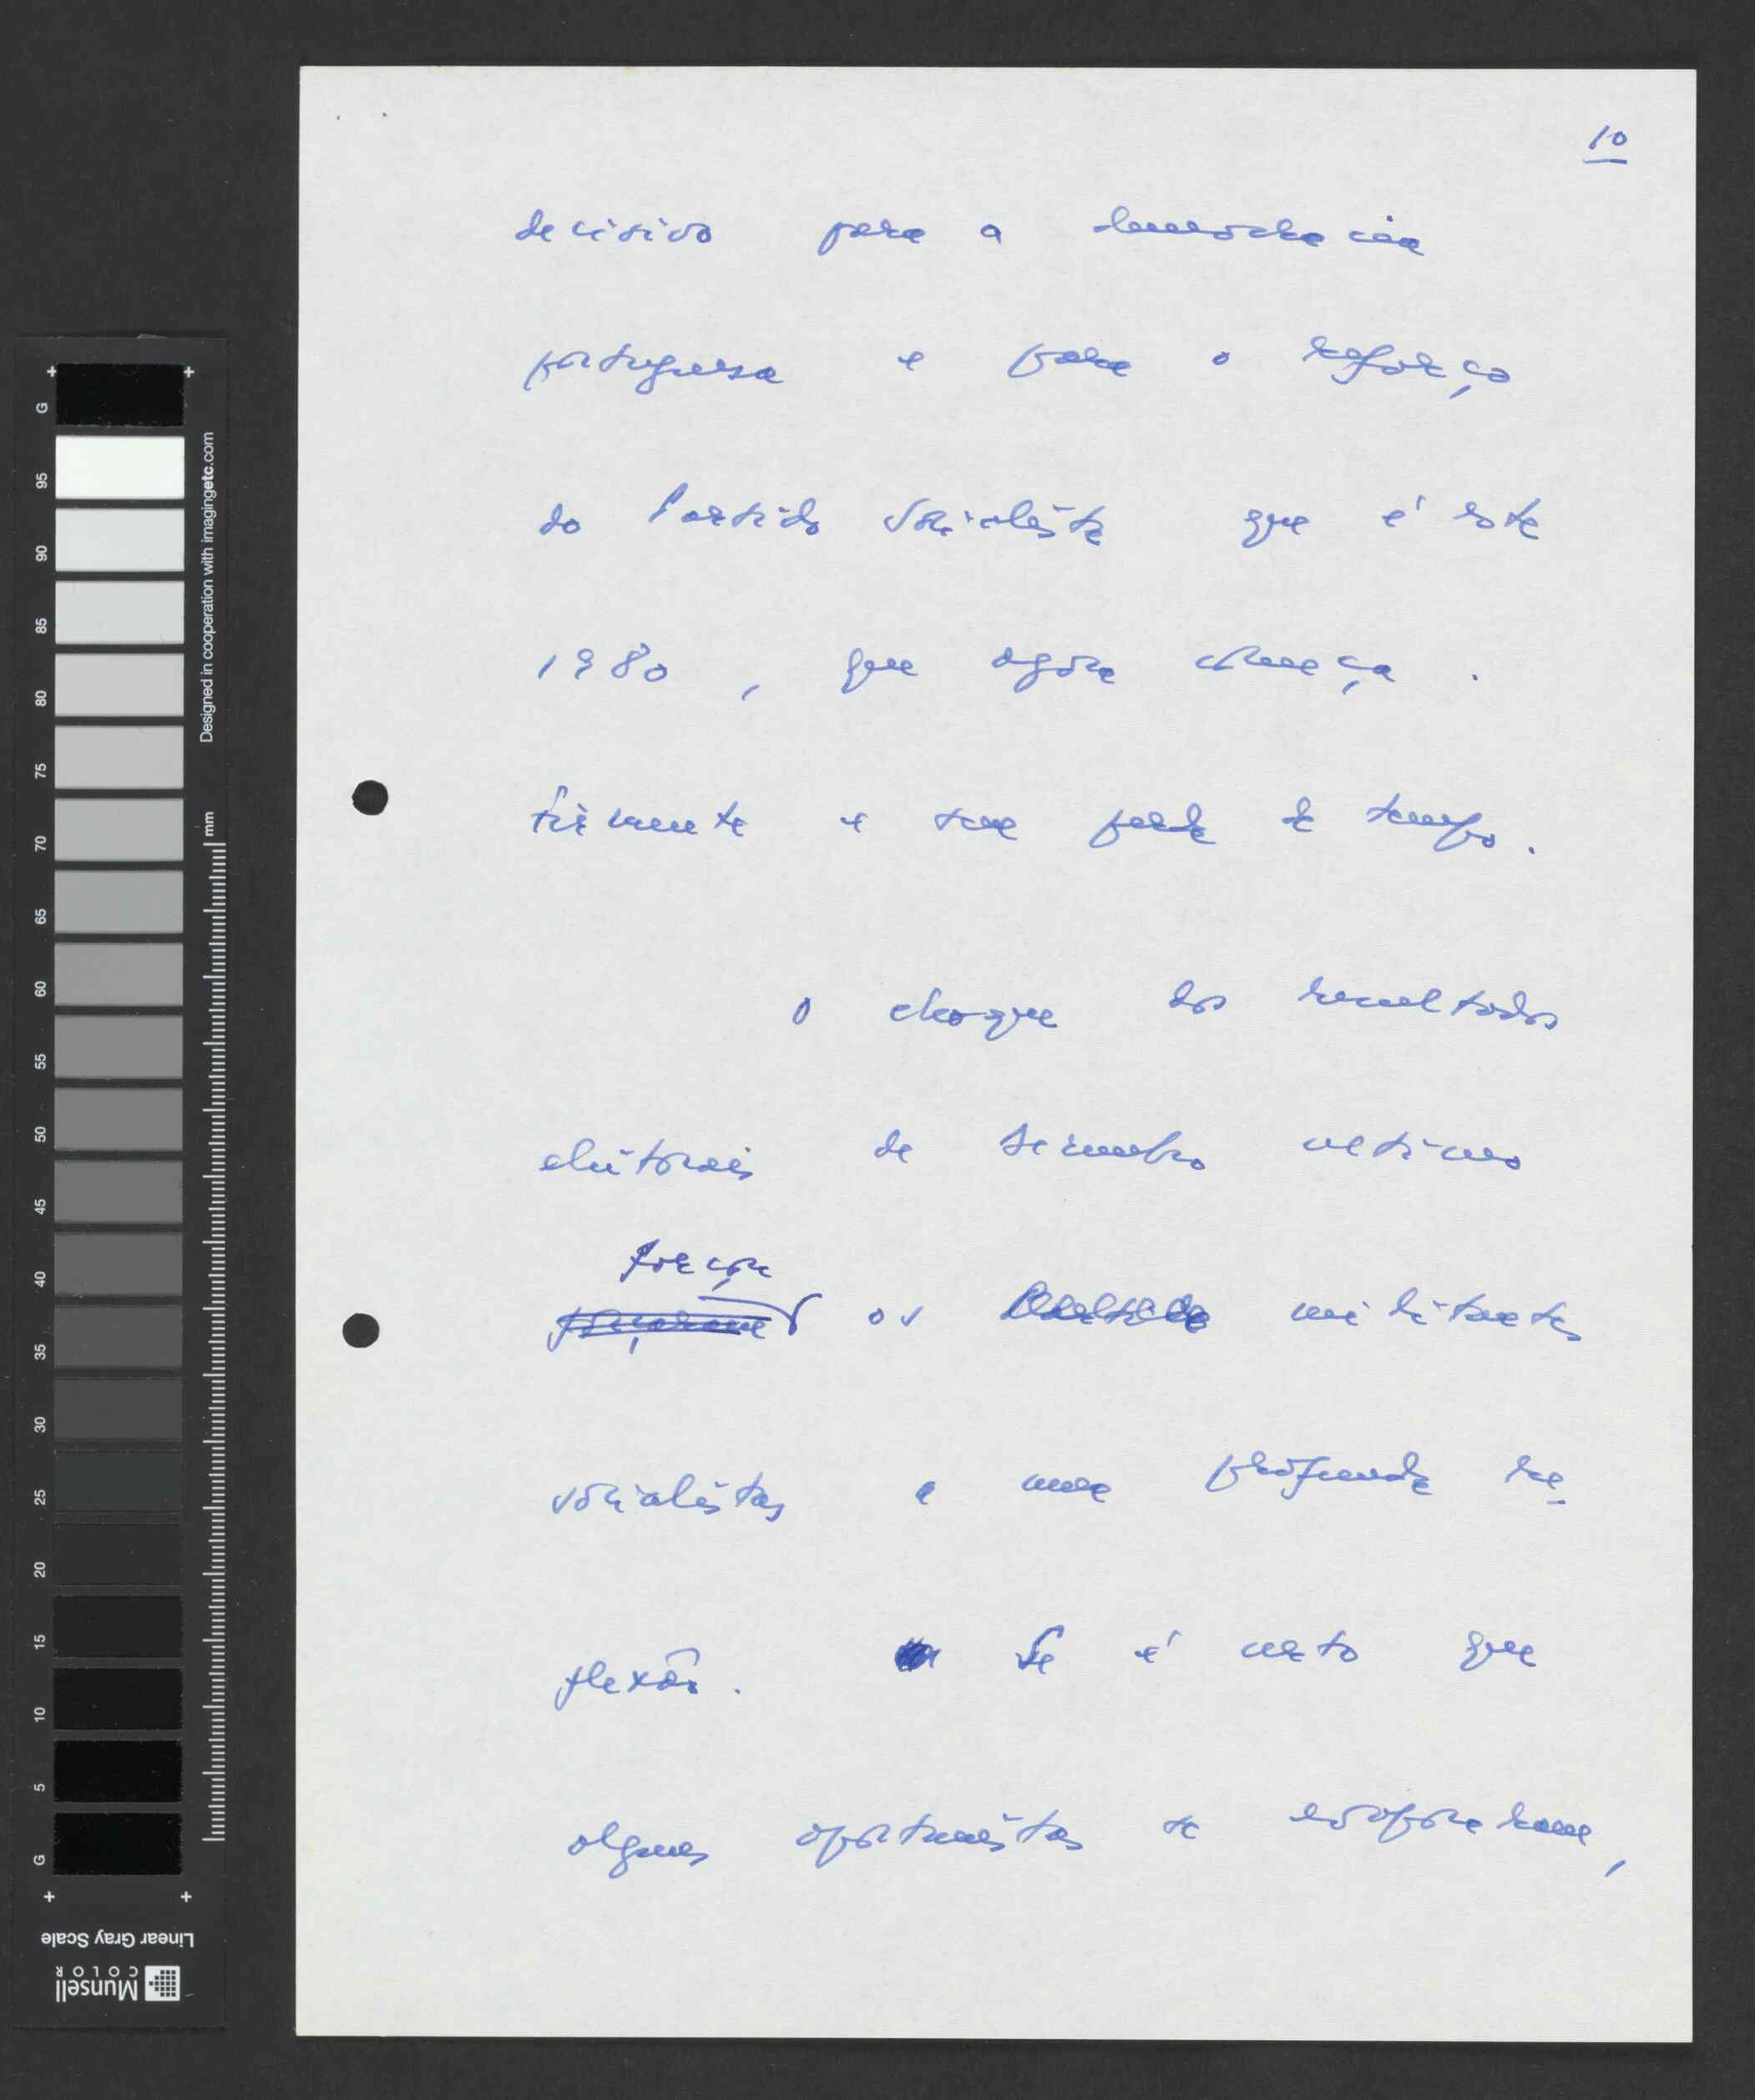 10
decisivo para a democracia
portuguesa e para o reforço
do Partido Socialista que é este
1980, que agora começa.
firmente e sem perda de tempo.
O choque dos resultados
eleitorais de Dezembro último
forçou
forçaram os militantes
socialistas a uma profunda re-
flexão. Se é certo que
alguns oportunistas se evaporaram,
G
95
90
85
80
75
70
65
60
55
50
45
40
35
30
25
20
15
10
5
G
Designed in cooperation with imagingetc.com
mm
Linear Gray Scale
Munsell
COLOR